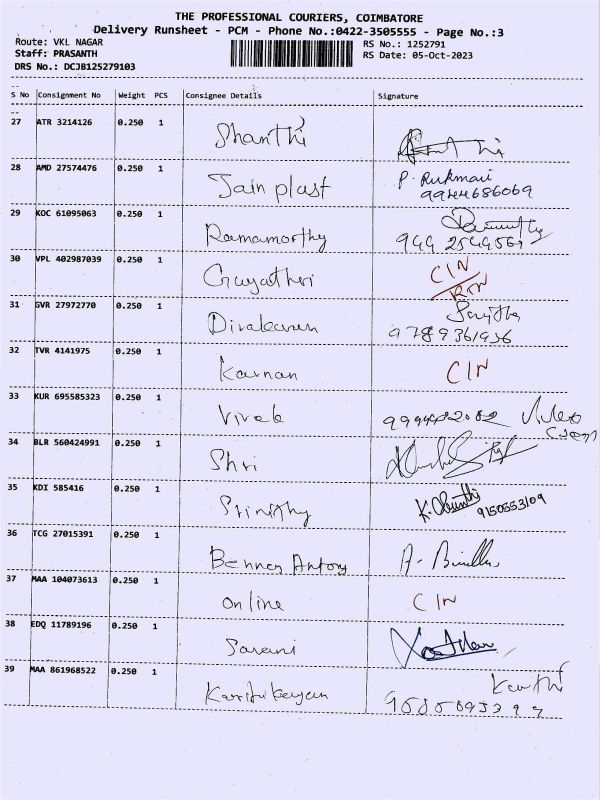 THE PROFESSIONAL COURIERS, COIMBATORE
Delivery Runsheet - PCM - Phone No.:0422-3505555 - Page No.:3
Route: VKL NAGAR RS No.: 1252791
Staff: PRASANTH RS Date: 05-Oct-2023
DRS No.: DCJB125279103
S No Consignment No Weight PCS Consignee Details Signature
27 ATR 3214126 0.250 1 Shanthi
28 AMD 27574476 0.250 1 Jain plast P. Rukmani
9944686069
29 KOC 61095063 0.250 1 Ramamorthy
944 2549569
30 VPL 402987039 0.250 1 Gayathri CIN
RTN
31 GVR 27972770 0.250 1 Divakaran
9789361936
32 TVR 4141975 0.250 1 Karnan CIN
33 KUR 695585323 0.250 1 Vivek
34 BLR 560424991 0.250 1 Shri
35 KDI 585416 0.250 1 Srinithy
9150553109
36 TCG 27015391 0.250 1 Antony
37 MAA 104073613 0.250 1 online CIN
38 EDQ 11789196 0.250 1
39 MAA 861968522 0.250 1 Karthikeyan